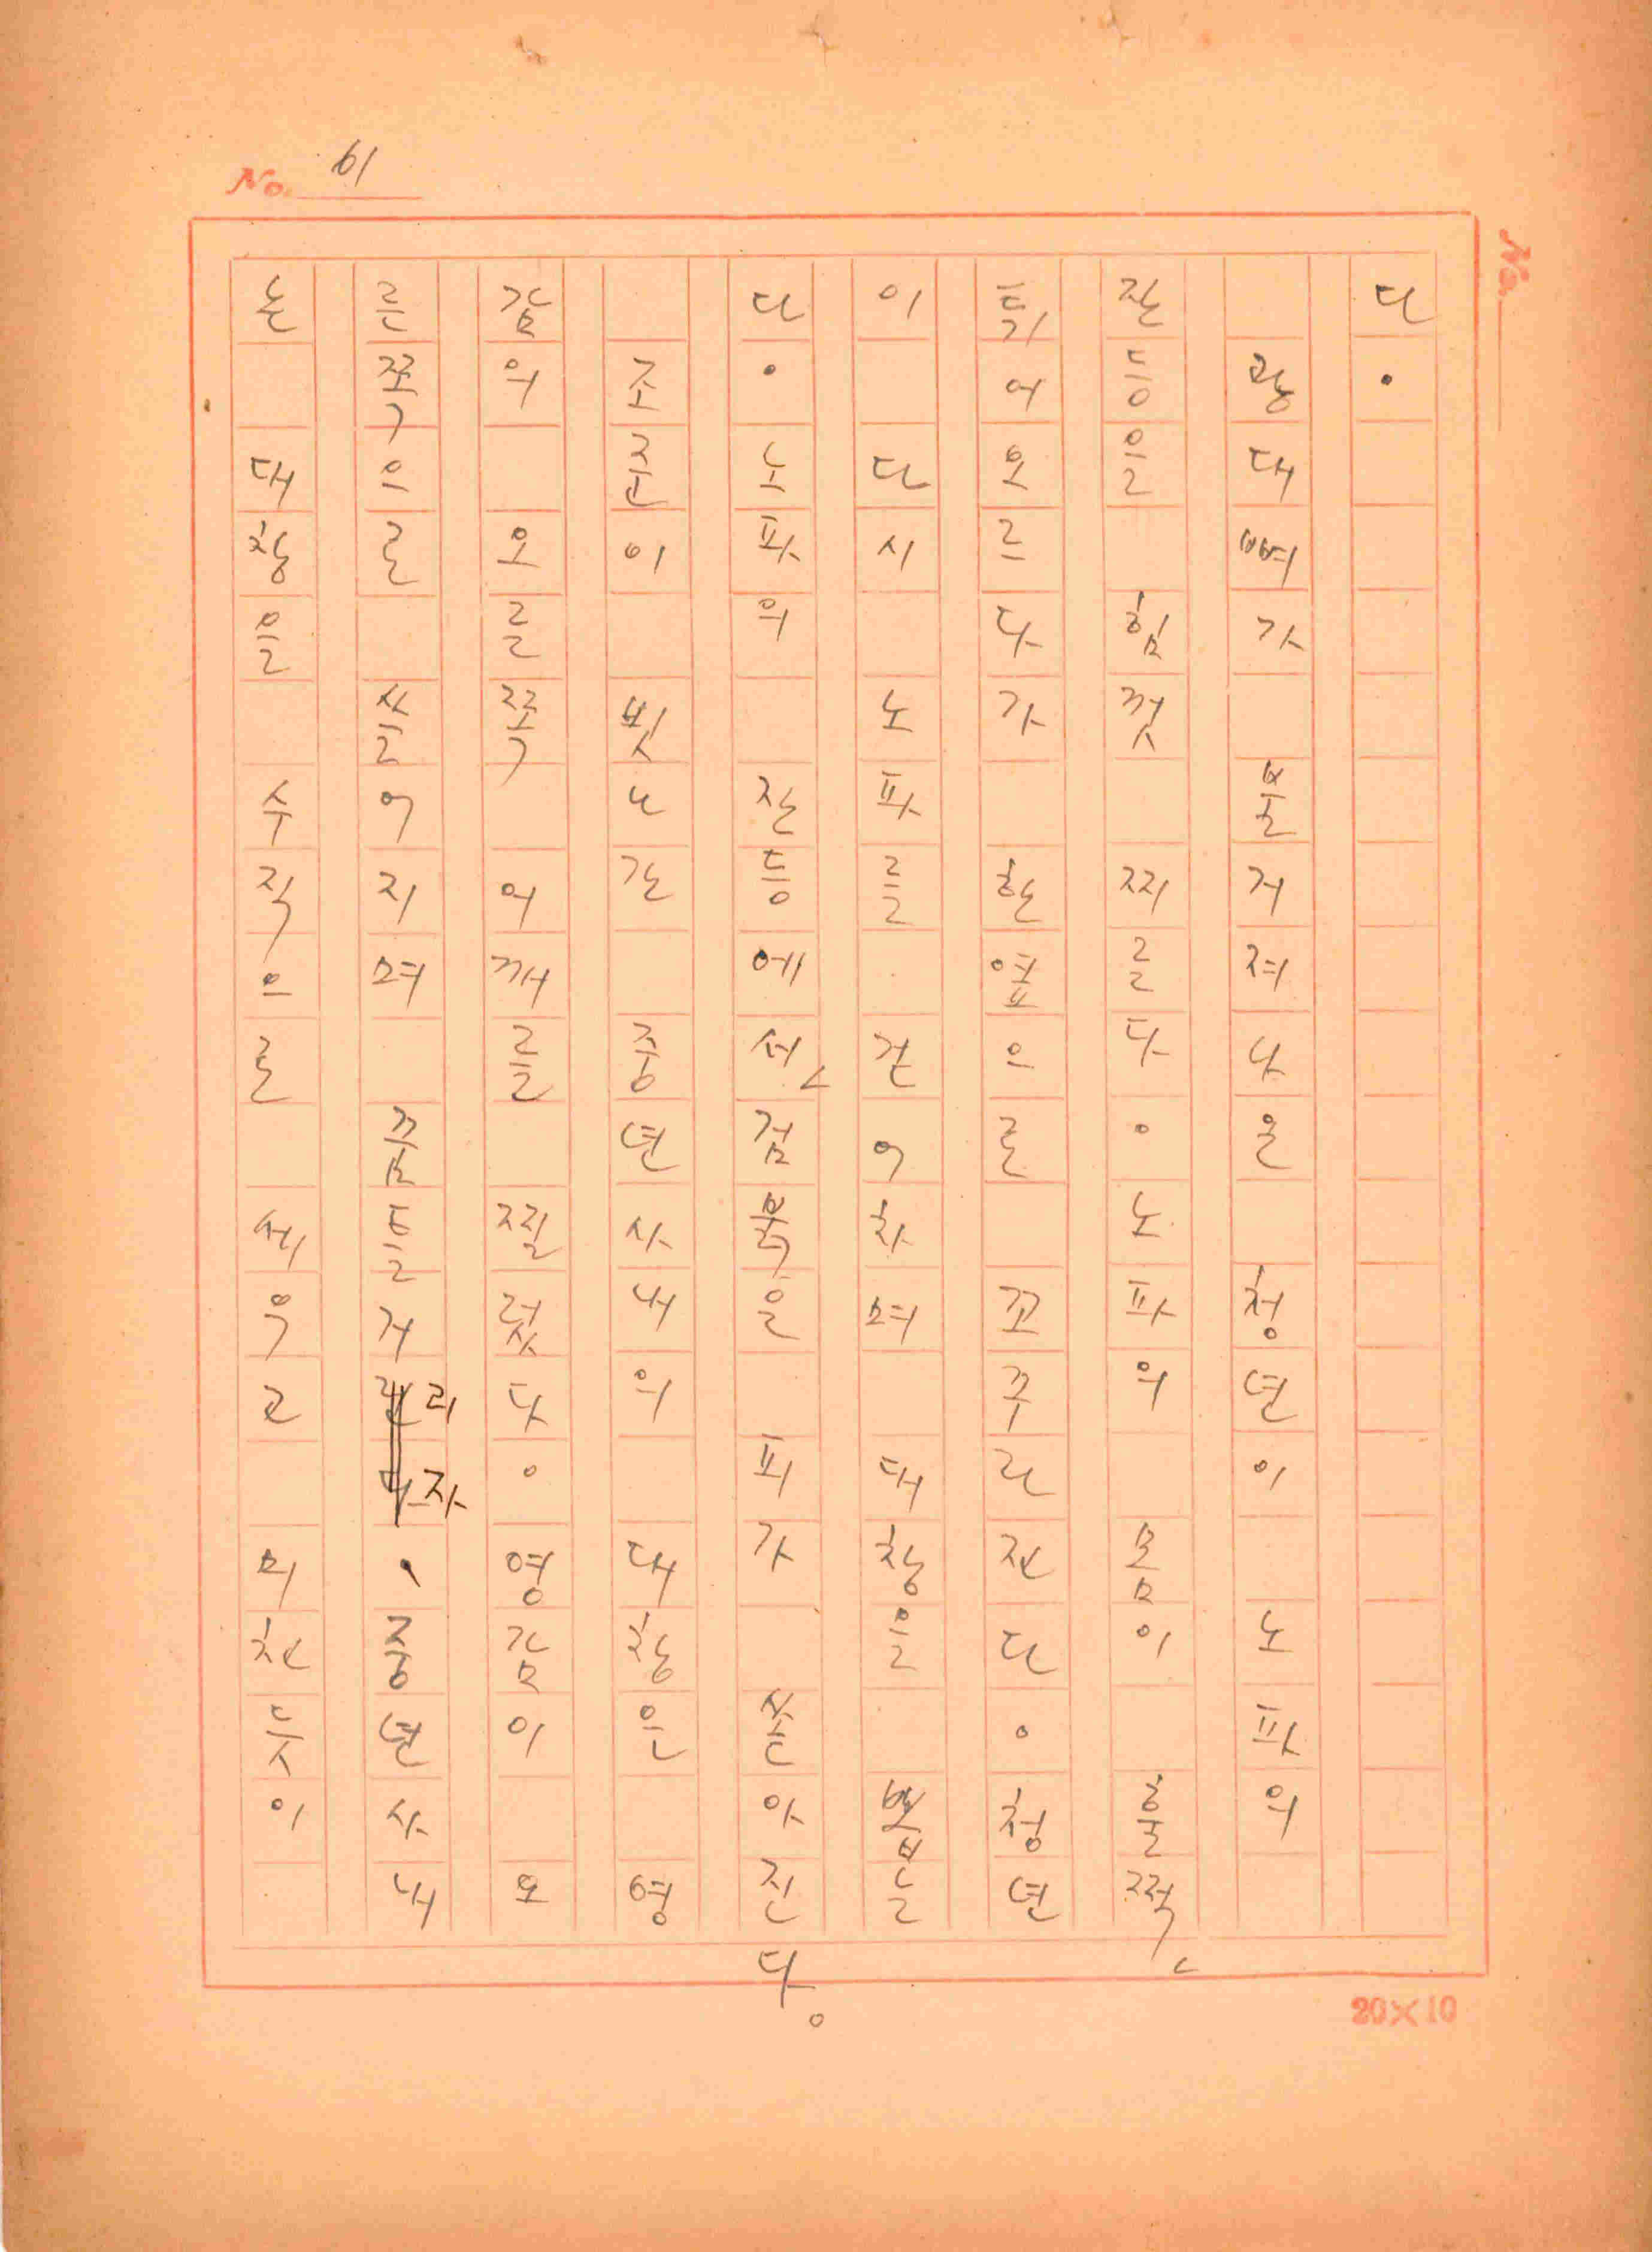 No. 61
다.
광대뼈가 불거져나온 청년이 노파의
잔등을 힘껏 찌른다. 노파의 몸이 훌쩍
튀어오르다가 한옆으로 꼬꾸라진다. 청년
이 다시 노파를 걷어차며 대창을 뽑는
다. 노파의 잔등에선 검붉은 피가 쏟아진다.
조준이 빗나간 중년사내의 대창은 영
감의 오른쪽 어깨를 찔렀다. 영감이 오
른쪽으로 쓸어지며 꿈틀거리자, 중년사내
는 대창을 수직으로 세우고 미친듯이
No.
20×10